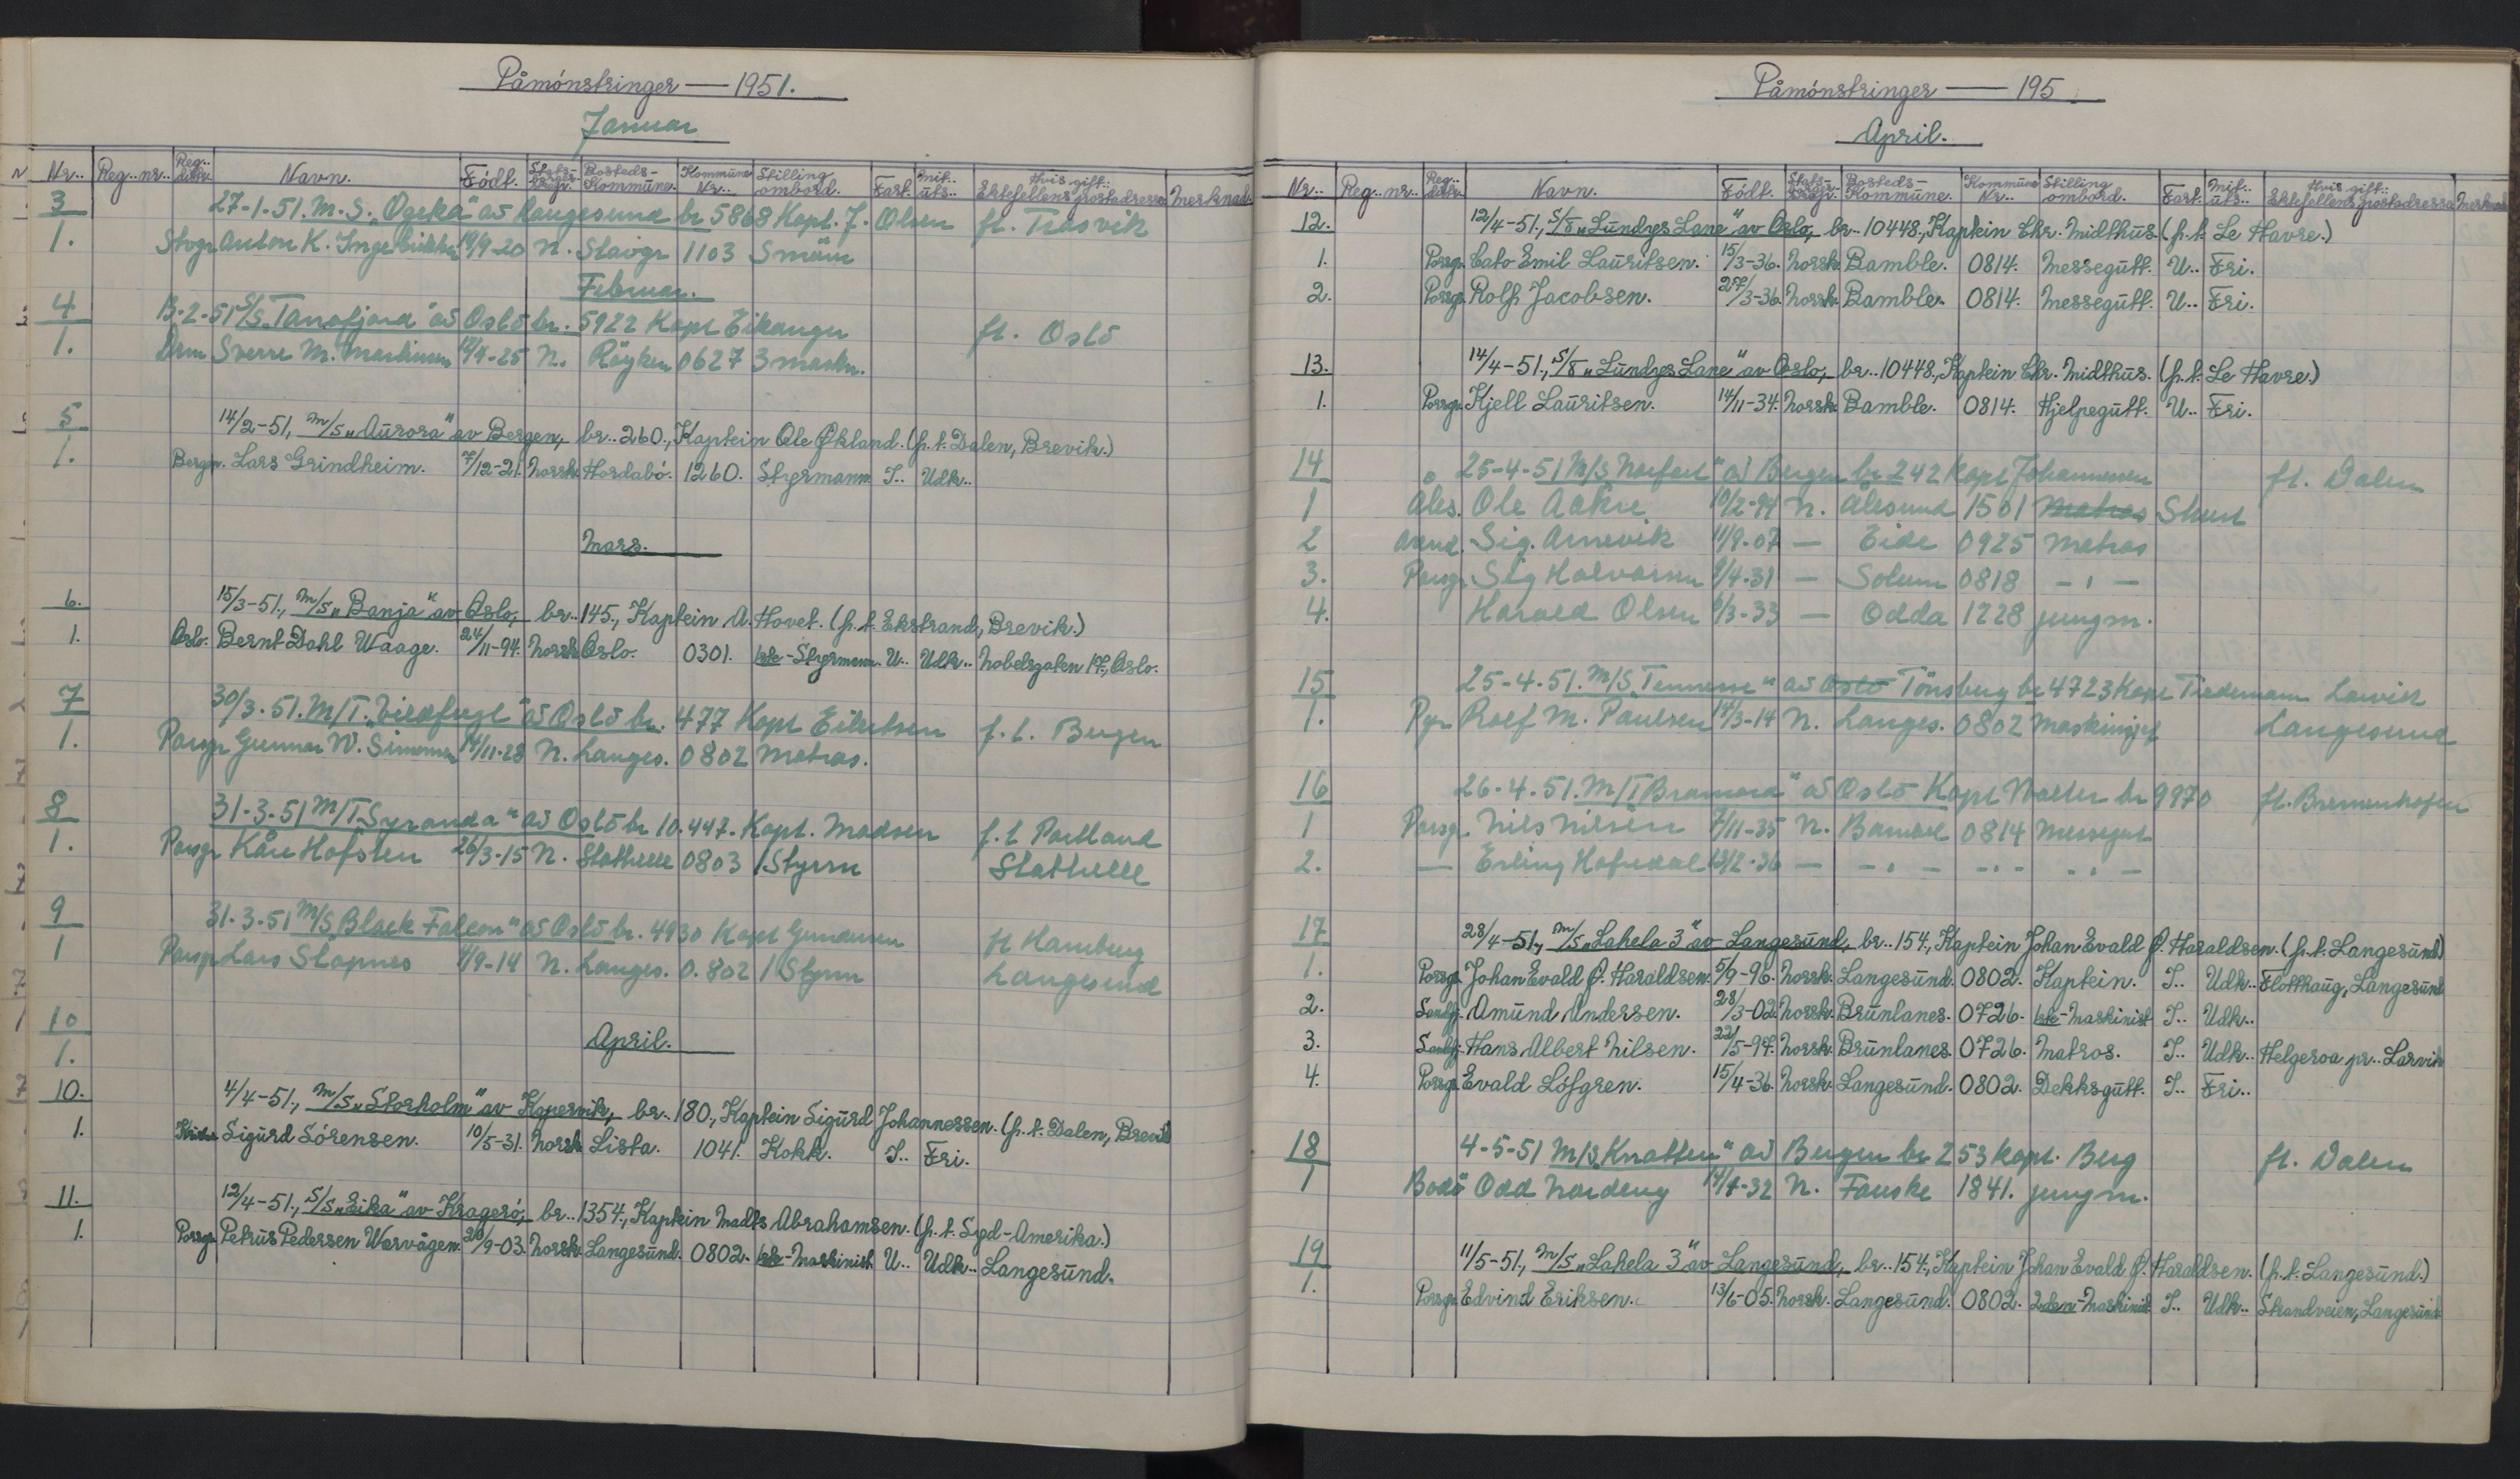 Påmónstringer — 1951.
Januar
Nr.. Reg..nr.. Reg.. distr. Navn. Födt. Stats- borger- Bosteds- Kommune. Kommune Nr.. Stilling ombord. Fart. Mit.. uts.. Hvis gift: Ektefellens postadresse Merknad.
3 27-1-51. M.S. „Ogeka" av Haugesund br 5868 Kapt. J. Olsen ft.
1. Stvgr Anton K. 19/9-20 N. Stavgr 1103
Februar.
4 B-2-51 S/S „Tanafjord" av Oslo br. 5922 Kapt Eikanger ft. Oslo
1. Drm Sverre M. Martinsen 12/4-25 N. Röyken 0627 3 maskn.
5 14/2-51, M/S „Aurora" av Bergen, br..260., Kaptein Ole Økland. (p.t. Dalen, Brevik.)
1. Bergn. Lars Grindheim. 7/12-21. Norsk. Hordabó. 1260. Styrmann I.. Udk..
Mars.
6. 15/3-51., M/S „Banja" av Oslo, br..145., Kaptein A. Hovet. (p.t. Ekstrand, Brevik.)
1. Oslo. Bernt Dahl Waage. 24/11-94. Norsk Oslo. 0301. 1ste-Styrmann. U.. Udk.. Nobelsgaten 17, Oslo.
7 30/3-51. M/T. „Vildfugl" av Oslo br. 477 Kapt Eilertsen f.t. Bergen
1. Porsgr Gunnar W. Simonsen 14/11-28 N. Langes. 0802 Matros.
8 31-3-51 M/T „Syranda" av Oslo br 10.447. Kapt. Madsen f.t Portland
1. Porsgr Kåre Hofsten 26/3-15 N. Stathelle 0803 1 Styrm Stathelle
9 31-3-51 M/S „Black Falcon" av Oslo br. 4930 Kapt Gundersen ft Hamburg
1 Porsgr Lars Stapnes 4/9-14 N. Langes. 0.802 1 Styrm Langesund
10
1. April.
10. 4/4-51., M/S „Storholm" av Kopervik, br..180., Kaptein Sigurd Johannessen. (p.t. Dalen, Brevik
1. Sigurd Sórensen. 10/5-31. Norsk Lista. 1041. Kokk. I.. Fri.
11. 12/4-51., S/S „Eika" av Krageró, br..1354., Kaptein Madts Abrahamsen. (p.t. Syd-Amerika.)
1. Porsgr Petrus Pedersen Warvågen. 20/9-03. Norsk. Langesund. 0802. 1ste-Maskinist U.. Udk.. Langesund.
Påmónstringer — 195
April.
Nr.. Reg..nr.. Reg.. distr. Navn. Födt. Stats- borger- Bosteds- Kommune. Kommune Nr.. Stilling ombord. Fart. Mit.. uts.. Hvis gift: Ektefellens postadresse Merknad
12. 12/4-51., S/S „Lundys Lane" av Oslo, br..10448., Kaptein Chr. Midthus (p.t. Le Havre.)
1. Porsgr. Cato Emil Lauritsen. 15/3-36. Norsk Bamble. 0814. Messegutt. U.. Fri.
2. Porsgr. Rolf Jacobsen. 27/3-36. Norsk. Bamble. 0814. Messegutt. U.. Fri.
13. 14/4-51., S/S „Lundys Lane" av Oslo, br..10448., Kaptein Chr. Midthus. (p.t. Le Havre.)
1. Porsgr. Kjell Lauritsen. 14/11-34. Norsk. Bamble. 0814. Hjelpegutt. U.. Fri.
14 25-4-51 M/S „Norfart" av Bergen br 242 Kapt Johannessen ft. Dalen
1 Åles. Ole Aakre 10/2-99 N. Ålesund 1501 Matros Stuert
2 Arend. Sig. Arnevik 11/9-07 — Eide 0925 Matros
3. Porsgr. Sig Halvorsen 9/4-31 — Solum 0818 - " -
4. Harald Olsen 9/3-33 — Odda 1228 jungm.
15 25-4-51. M/S „Tennesse" av Oslo Tönsberg br 4723 Kapt Tiedemann
1. Rolf M. Paulsen 14/3-14 N. Langes. 0802 Maskinsjef Langesund
16 26-4-51. M/T „Bramora" av Oslo Kapt Walter br 9970 ft. Bremenhafen
1 Porsgr. Nils Nilsen 7/11-35 N. Bamble 0814 Messegut
2. — Erling Hafredal 13/2-36 — - " - - " - - " -
17 28/4-51., M/S „Lahela 3" av Langesund, br..154., Kaptein Johan Evald Ø. Haraldsen. (p.t. Langesund)
1. Porsgr. Johan Evald Ø. Haraldsen. 5/9-96. Norsk. Langesund. 0802. Kaptein. I.. Udk.. Flotthaug, Langesund
2. Sandfj. Amund Andersen. 28/3-02. Norsk. Brunlanes. 0726. 1ste-Maskinist I.. Udk..
3. Sandfj. Hans Albert Nilsen. 22/5-97. Norsk. Brunlanes. 0726. Matros. I.. Udk.. Helgeroa pr.. Larvik
4. Porsgr. Evald Lófgren. 15/4-36. Norsk. Langesund. 0802. Dekksgutt. I.. Fri..
18 4-5-51 M/S „Knatten" av Bergen br 253 Kapt. Berg ft. Dalen
1 Bodö Odd Nordeng 14/4-32 N. Fauske 1841. jungm.
19 11/5-51., M/S „Lahela 3" av Langesund, br..154., Kaptein Johan Evald Ø. Haraldsen. (p.t. Langesund.)
1. Porsgr. Edvind Eriksen. 13/6-05. Norsk. Langesund. 0802. 2den-Maskinist I.. Udk.. Strandveien, Langesund